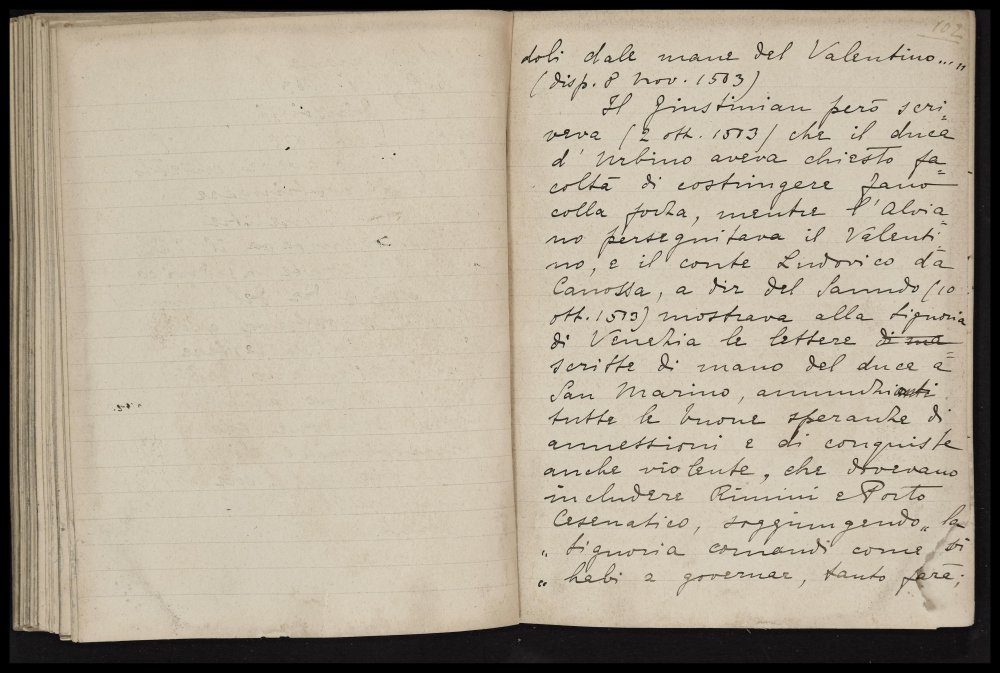 102
doli dale mane del Valentino...„
(disp. 8 nov. 1503)
Il Giustinian però scri=
veva (2 ott. 1503) che il duca
d'Urbino aveva chiesto fa=
coltà di costringere Fano
colla forza, mentre l'Alvia=
no perseguitava il Valenti=
no, e il conte Ludovico da
Canossa, a dir del Sanudo (10
ott. 1503) mostrava alla Signoria
di Venezia le lettere di ma=
scritte di mano del duca a
San Marino, annunzianti
tutte le buone speranze di
annessioni e di conquiste
anche violente, che dovevano
includere Rimini e Porto
Cesenatico, soggiungendo „ la
„ Signoria comandi come si
„ habi a governar, tanto farà;